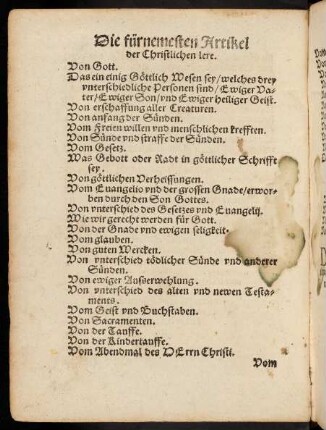 Die fürnemesten Artikel
der Christlichen lere.
Von Gott.
Das ein einig Göttlich Wesen sey/welches drey
vnterschiedliche Personen sind/Ewiger Va-
ter/Ewiger Son/vnd Ewiger heiliger Geist.
Von erschaffung aller Creaturen.
Von anfang der Sünden.
Vom Freien willen vnd menschlichen krefften.
Von Sünde vnd straffe der Sünden.
Vom Gesetz.
Was Gebott oder Radt in göttlicher Schrifft
sey.
Von göttlichen Verheissungen.
Vom Euangelio vnd der grossen Gnade/erwor-
ben durch den Son Gottes.
Von vnterschied des Gesetzes vnd Euangelij.
Wie wir gerecht werden für Gott.
Von der Gnade vnd ewigen seligkeit.
Vom glauben.
Von guten Wercken.
Von vnterschied tödlicher Sünde vnd anderer
Sünden.
Von ewiger Auserwehlung.
Von vnterschied des alten vnd newen Testa-
ments.
Vom Geist vnd Buchstaben.
Von Sacramenten.
Von der Tauffe.
Von der Kindertauffe.
Vom Abendmal des HErrn Christi.
Vom